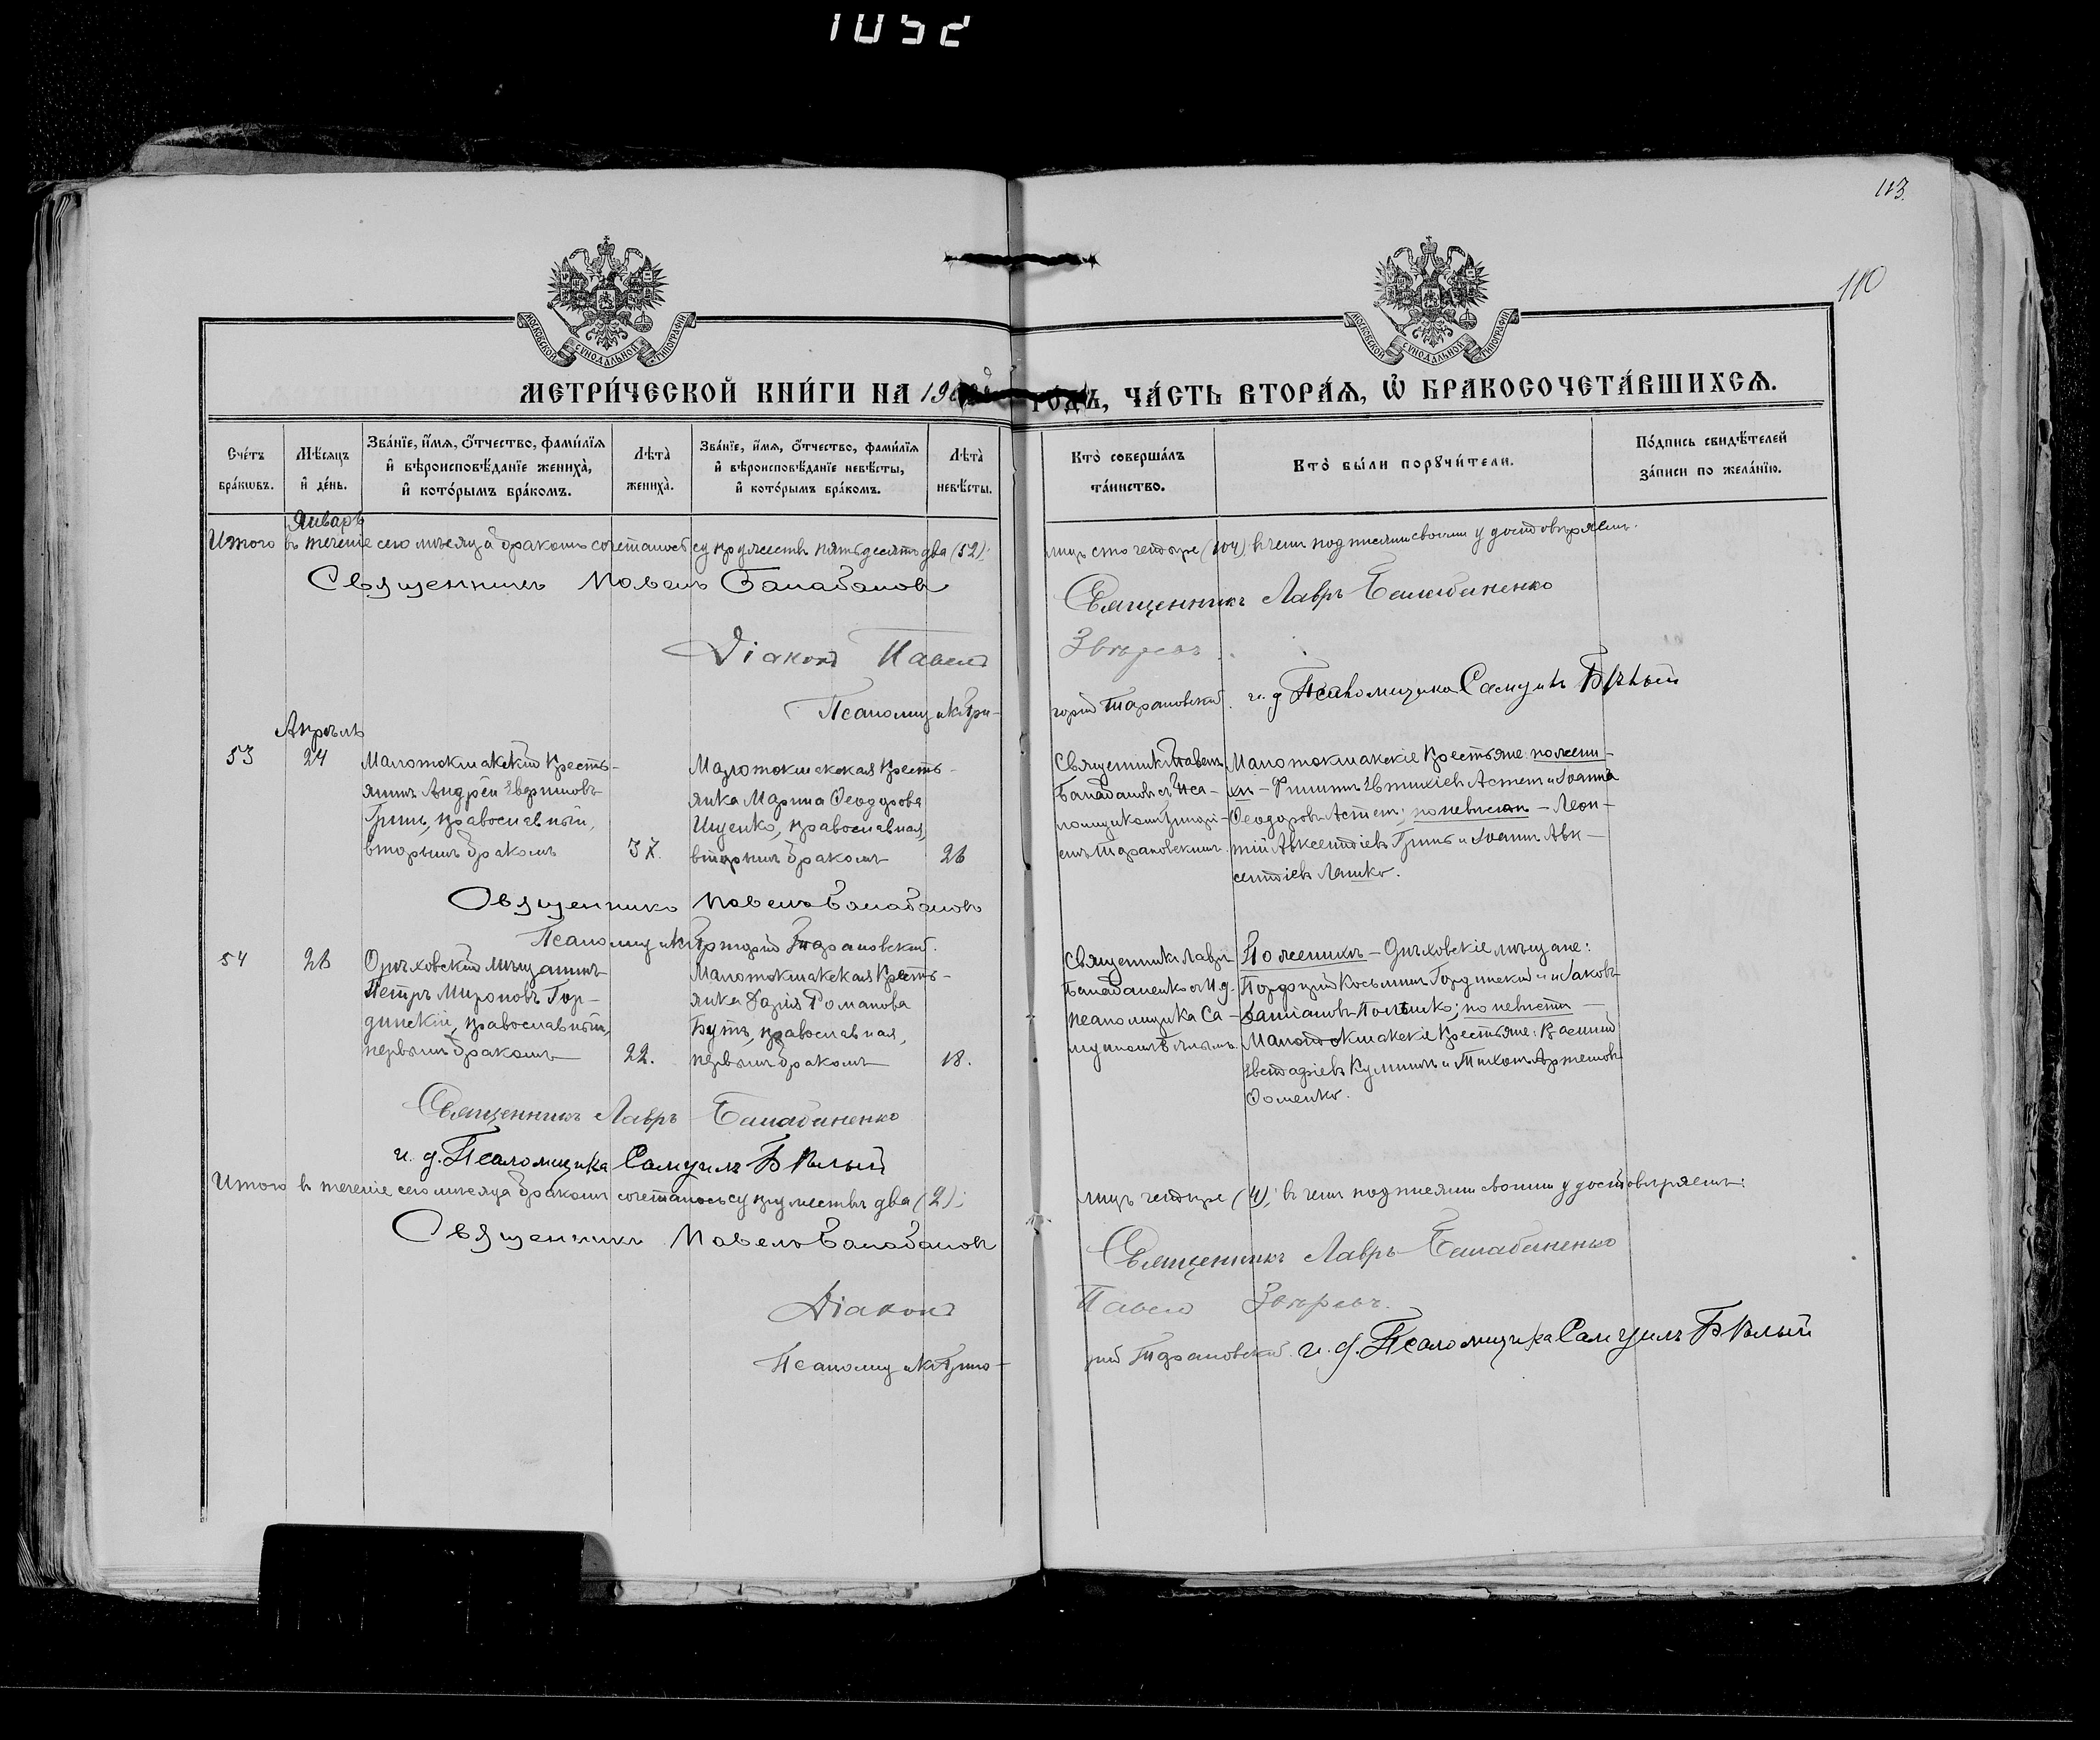 1052
113.
110
МОСКОВСКОЙ СѴНОДАЛЬНОЙ ТИПОГРАФІИ
МОСКОВСКОЙ СѴНОДАЛЬНОЙ ТИПОГРАФІИ
МЕТРИ́ЧЕСКОЙ КНИ́ГИ НА 190 ГОДЪ, ЧА́СТЬ ВТОРА́Ѧ, Ѡ҆ БРАКОСОЧЕТА́ВШИХСѦ.
Сче́тъ бра́кѡвъ.
Мѣ́сѧцъ и҆ де́нь.
Зва́нїе, и҆́мѧ, ѻ҆́тчество, фами́лїѧ и҆ вѣроисповѣ́данїе жениха̀, и҆ кото́рымъ бра́комъ.
Лѣта̀ жениха̀.
Зва́нїе, и҆́мѧ, ѻ҆́тчество, фами́лїѧ и҆ вѣроисповѣ́данїе невѣ́сты, и҆ кото́рымъ бра́комъ.
Лѣта̀ невѣ́сты.
Кто̀ соверша́лъ та́инство.
Кто̀ бы́ли порꙋчи́тели.
По́дпись свидѣ́телей за́писи по жела́нїю.
Январь
Итого въ теченіе сего мѣсяца бракомъ сочеталось супружествъ пятьдесятъ два (52);
лицъ сто четыре (104) въ чемъ подписями своими удостовѣряемъ.
Священникъ Павелъ Балабановъ
Священникъ Лавръ Балабаненко
Діаконъ Павелъ
Звѣревъ.
Псаломщикъ Гри-
горій Тарановскій. и. д Псаломщика Самуилъ Бѣлый
Апрѣль
53
24
Малотокмакскій кресть-
янинъ Андрей Евфимовъ
Гринь, православный,
вторымъ бракомъ
37.
Малотокмакская кресть-
янка Марина Ѳеодорова
Ищенко, православная,
вторымъ бракомъ
26
Священникъ Павелъ
Балабановъ съ Пса-
ломщикомъ Григорі-
емъ Тарановскимъ.
Малотокмакскіе крестьяне по жени-
хѣ – Филиппъ Евтихіевъ Астепъ и Іоаннъ
Ѳеодоровъ Астепъ; по невѣстѣ – Леон-
тій Авксентіевъ Гринь и Іоаннъ Авк-
сентіевъ Ляшко.
Священникъ Павелъ Балабановъ
Псаломщикъ Григорій Тарановскій.
54
26
Орѣховскій мѣщанинъ
Петръ Мироновъ Гор-
динскій, православный,
первымъ бракомъ
22.
Малотокмакская кресть-
янка Дарія Романова
Бутъ, православная,
первымъ бракомъ
18.
Священникъ Лавръ
Балабаненко съ И. д.
псаломщика Са-
муиломъ Бѣлымъ.
По женихѣ – Орѣховскіе мѣщане:
Порфирій Косьминъ Гординскій и Іаковъ
Даміановъ; по невѣстѣ –
Малотокмакскіе крестьяне: Василій
Евстафіевъ и Тихонъ Артемовъ
Ѳоменко.
Священникъ Лавръ Балабаненко
и. д. Псаломщика Самуилъ Бѣлый
Итого въ теченіе сего мѣсяца бракомъ сочеталось супружествъ два (2);
лицъ четыре (4); въ чемъ подписями своими удостовѣряемъ:
Священникъ Павелъ Балабановъ
Священникъ Лавръ Балабаненко
Діаконъ
Павелъ Звѣревъ.
Псаломщикъ Григо-
рій Тарановскій. и. д. Псаломщика Самуилъ Бѣлый